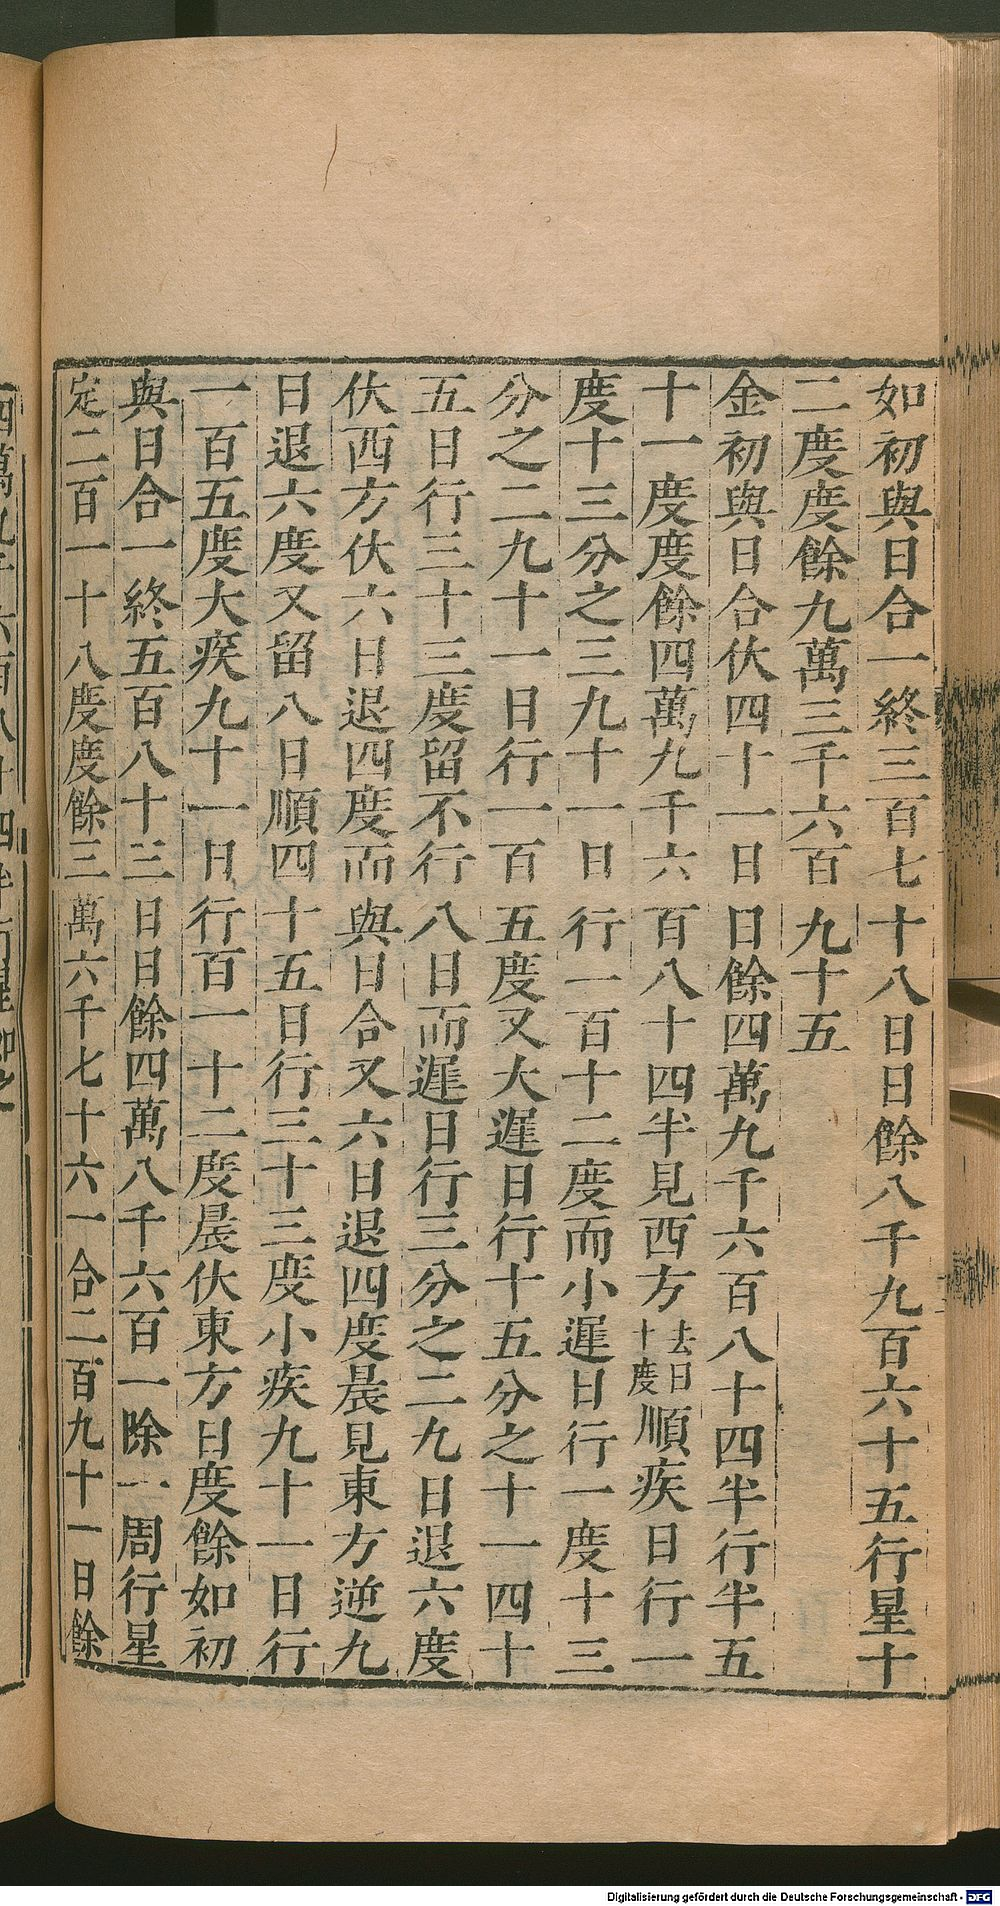 如初與日合一終三百七十八日日餘八千九百六十五行星十
二度度餘九萬三千六百九十五
金初與日合伏四十一日日餘四萬九千六百八十四半行半五
十一度度餘四萬九千六百八十四半見西方去日十度順疾日行一
度十三分之三九十一日行一百十二度而小遲日行一度十三
分之二九十一日行一百五度又大遲日行十五分之十一四十
五日行三十三度留不行八日而遲日行三分之二九日退六度
伏西方伏六日退四度而與日合又六日退四度晨見東方逆九
日退六度又留八日順四十五日行三十三度小疾九十一日行
一百五度大疾九十一日行百一十二度晨伏東方日度餘如初
與日合一終五百八十三日日餘四萬八千六百一除一周行星
定二百一十八度度餘三萬六千七十六一合二百九十一日餘
Digitalisierung gefördert durch die Deutsche Forschungsgemeinschaft - DFG